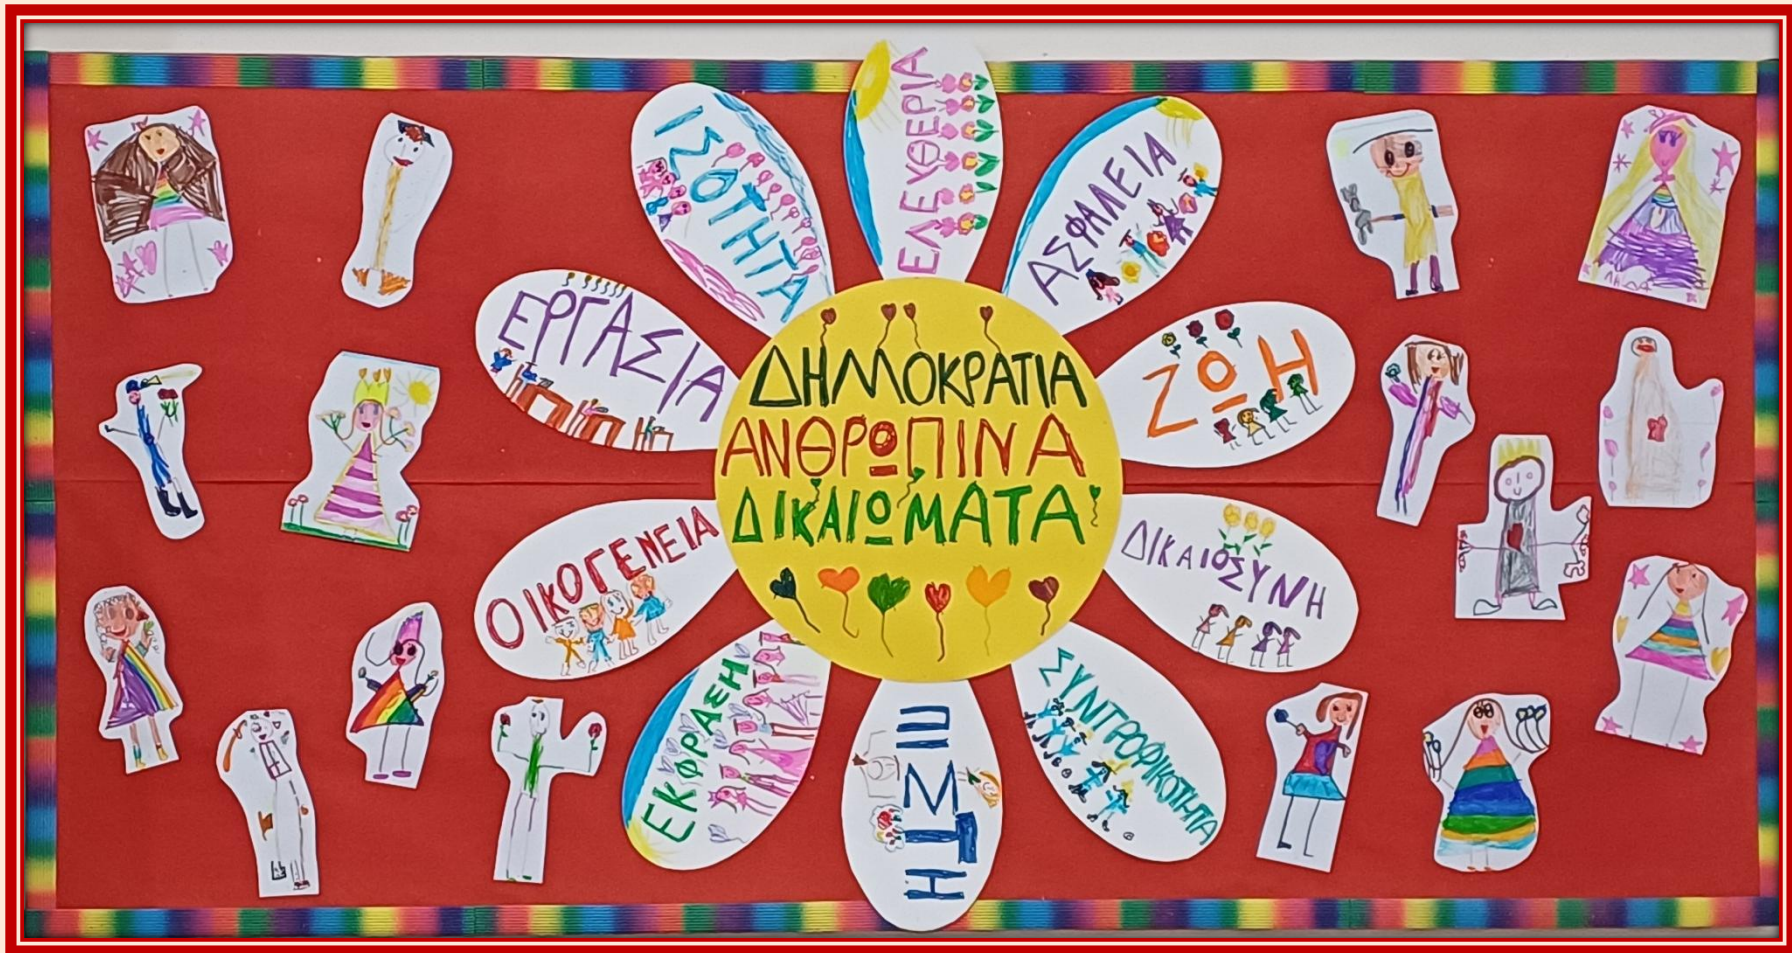 ΔΗΜΟΚΡΑΤΙΑ
ΑΝΘΡΩΠΙΝΑ
ΔΙΚΑΙΩΜΑΤΑ
ΕΛΕΥΘΕΡΙΑ
ΑΣΦΑΛΕΙΑ
ΖΩΗ
ΔΙΚΑΙΟΣΥΝΗ
ΣΥΝΤΡΟΦΙΚΟΤΗΤΑ
ΕΚΦΡΑΣΗ
ΟΙΚΟΓΕΝΕΙΑ
ΕΡΓΑΣΙΑ
ΙΣΟΤΗΤΑ